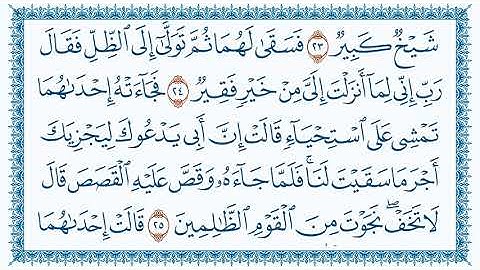 شَيْخٌ كَبِيرٌ ٢٣ فَسَقَىٰ لَهُمَا ثُمَّ تَوَلَّىٰٓ إِلَى ٱلظِّلِّ فَقَالَ
رَبِّ إِنِّي لِمَآ أَنزَلْتَ إِلَيَّ مِنْ خَيْرٍ فَقِيرٌ ٢٤ فَجَآءَتْهُ إِحْدَىٰهُمَا
تَمْشِي عَلَى ٱسْتِحْيَآءٍ قَالَتْ إِنَّ أَبِي يَدْعُوكَ لِيَجْزِيَكَ
أَجْرَ مَا سَقَيْتَ لَنَا ۚ فَلَمَّا جَآءَهُۥ وَقَصَّ عَلَيْهِ ٱلْقَصَصَ قَالَ
لَا تَخَفْ ۖ نَجَوْتَ مِنَ ٱلْقَوْمِ ٱلظَّٰلِمِينَ ٢٥ قَالَتْ إِحْدَىٰهُمَا